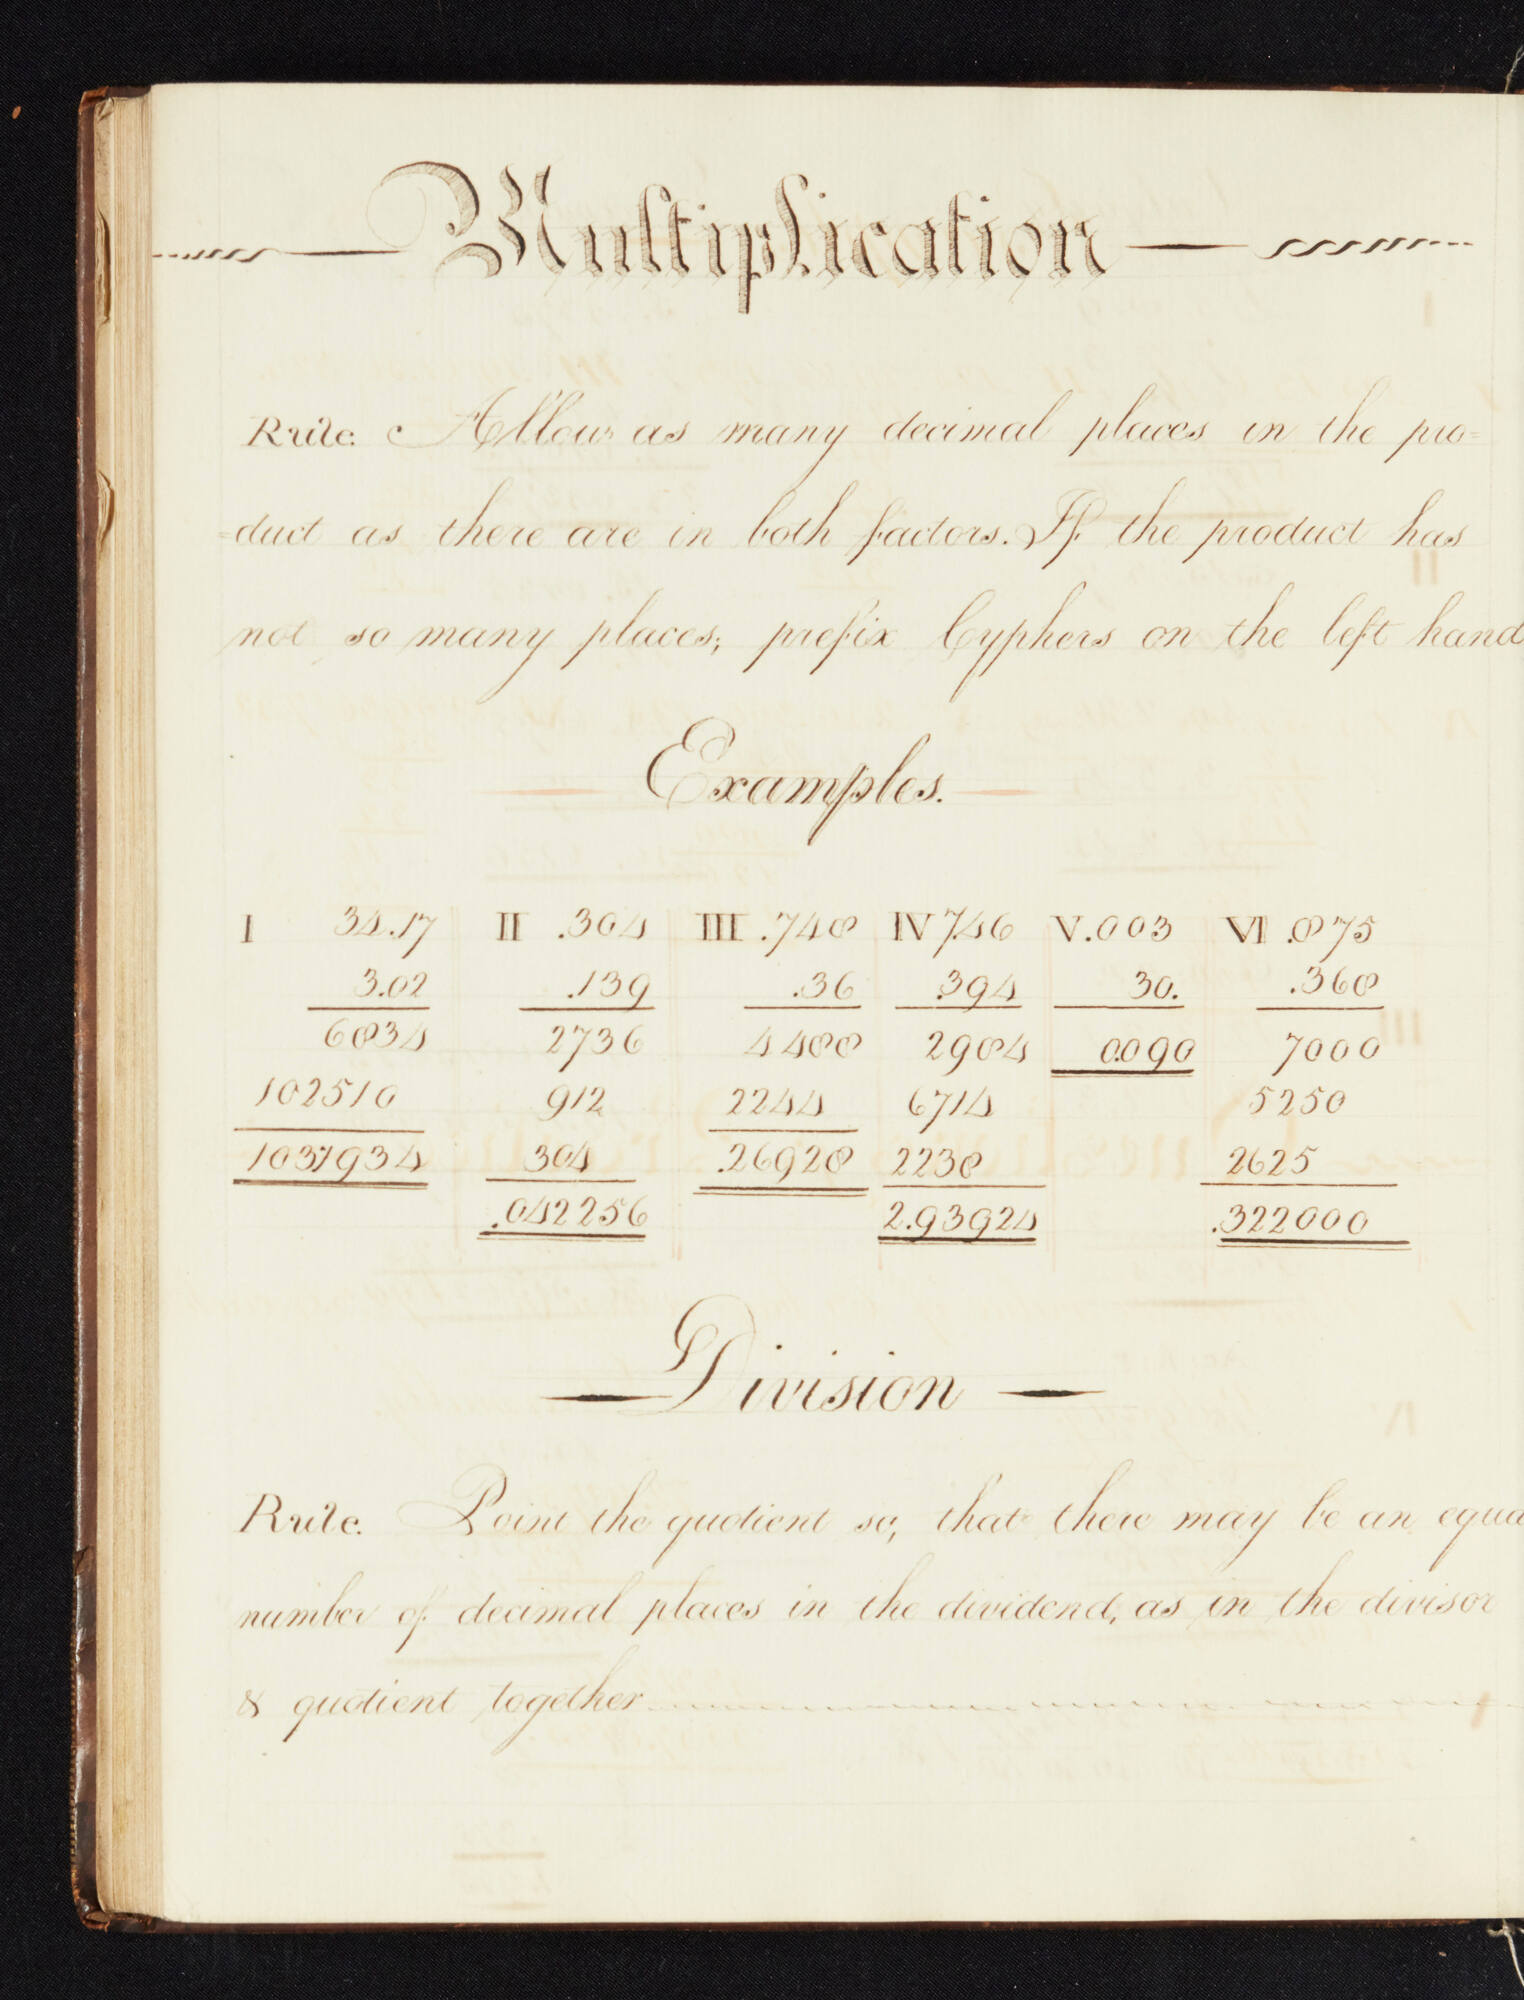 Multiplication
Rule. Allow as many decimal places in the pro=
=duct as there are in both factors. If the product has
not so many places; prefix Cyphers on the left hand
Examples.
I 34.17 II .304 III .748 IV 7.46 V .003 VI .875
3.02 .139 .36 .394 30. .368
6834 2736 4488 2984 0.090 7000
102510 912 2244 6714 5250
103.1934 304 .26928 2238 2625
.042256 2.93924 .322000
Division
Rule. Point the quotient so, that there may be an equa
number of decimal places in the dividend, as in the divisor
& quotient together